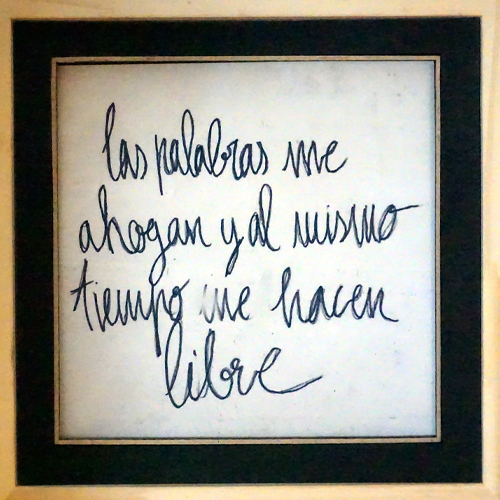 las palabras me
ahogan y al mismo
tiempo me hacen
libre